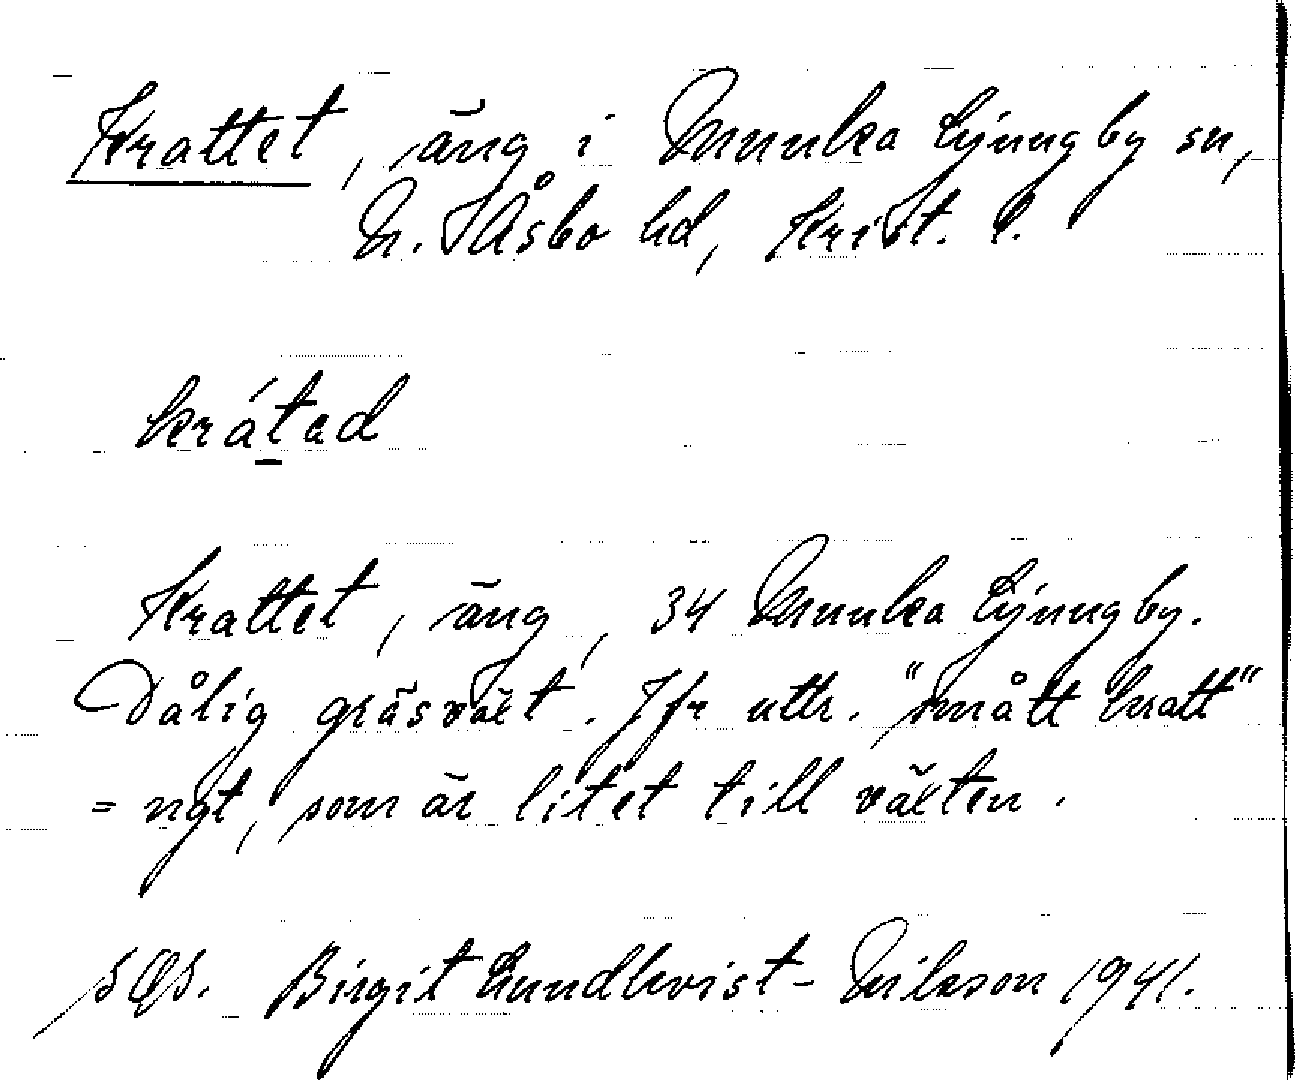 Krattet, äng i Munka Ljungby sn,
N. Åsbo hd, Krist. l.
krátad
Krattet, äng, 34 Munka Ljungby.
Dålig gräsväxt. Jfr uttr. "smått kratt"
= ngt, som är litet till växten.
Birgit Lundkvist-Nilsson 1941.